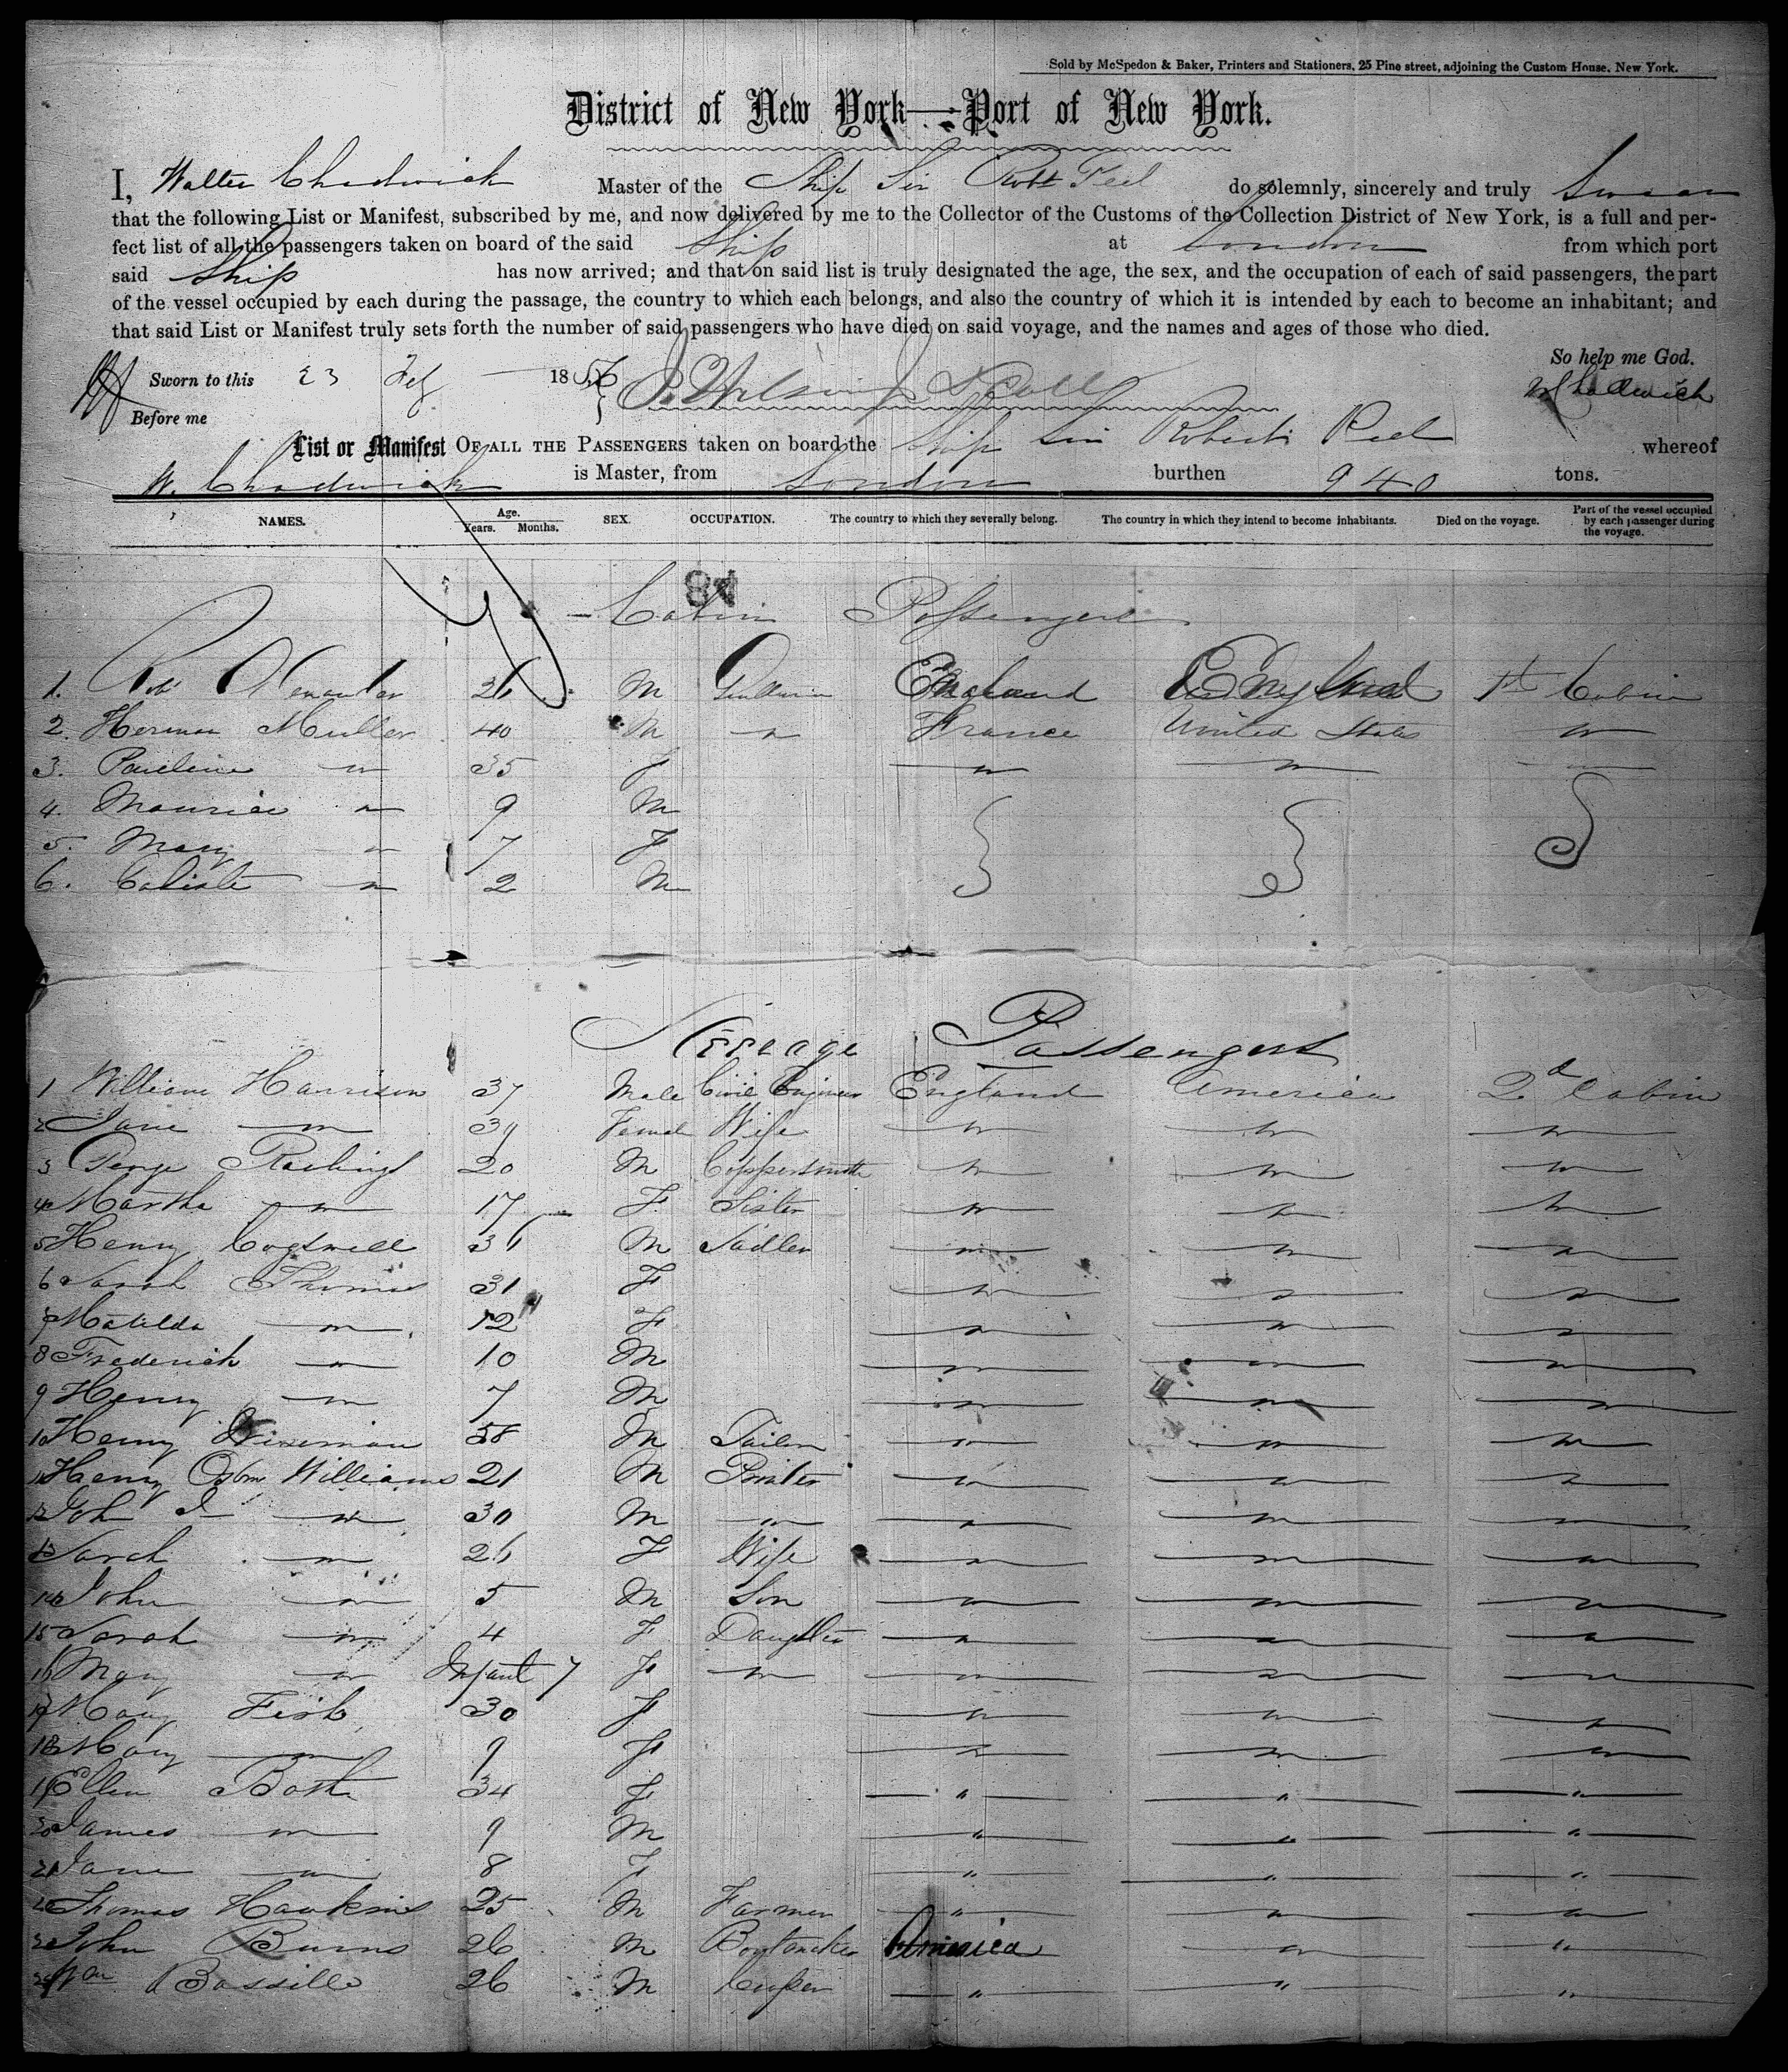 Sold by McSpedon & Baker, Printers and Stationers, 25 Pine street, adjoining the Custom House, New York.
District of New York—Port of New York.
I, Walter Chadwick Master of the Ship Sir Robt Peel do solemnly, sincerely and truly Swear
that the following List or Manifest, subscribed by me, and now delivered by me to the Collector of the Customs of the Collection District of New York, is a full and per-
fect list of all the passengers taken on board of the said Ship at London from which port
said Ship has now arrived; and that on said list is truly designated the age, the sex, and the occupation of each of said passengers, the part
of the vessel occupied by each during the passage, the country to which each belongs, and also the country of which it is intended by each to become an inhabitant; and
that said List or Manifest truly sets forth the number of said passengers who have died on said voyage, and the names and ages of those who died.
So help me God.
Sworn to this 23 Feb 185 W Chadwick
Before me
List or Manifest OF ALL THE PASSENGERS taken on board the Ship Sir Robert Peel whereof
W. Chadwick is Master, from London burthen 940 tons.
NAMES. Age. Years. Months. SEX. OCCUPATION. The country to which they severally belong. The country in which they intend to become inhabitants. Died on the voyage. Part of the vessel occupied by each passenger during the voyage.
Cabin Passengers
1. Robt 26 M Gentleman England England 1st Cabin
2. Herman Muller 40 M " France United States "
3. Pauline " 35 F " " "
4. Maurice " 9 M
5. Mary " 7 F
6. " 2 M
Steerage Passengers
1 William Harrison 37 Male Civil Engineer England America 2d Cabin
2 Jane " 39 Female Wife " " "
3 George 20 M Coppersmith " " "
4 Martha " 17 F Sister " " "
5 Henry Cogswell 36 M Sadler " " "
6 Sarah Thomas 31 F " " "
7 Matilda " 12 F " " "
8 Frederick " 10 M " " "
9 Henry " 7 M " " "
10 Henry Wiseman 38 M Tailor " " "
11 Haenry Osbn Williams 21 M " " "
12 John J " 30 M " " " "
13 Sarah " 26 F Wife " " "
14 John " 5 M Son " " "
15 Sarah " 4 F Daughter " " "
16 Mary " Infant 7 F " " " "
17 Mary Fisk 30 F " " "
18 Mary " 9 F " " "
19 Ellen 34 F " " "
20 James " 9 M " " "
21 Jane " 8 F " " "
22 Thomas Hawkins 25 M Farmer " " "
23 John Burns 26 M America " "
24 Wm 26 M " " "